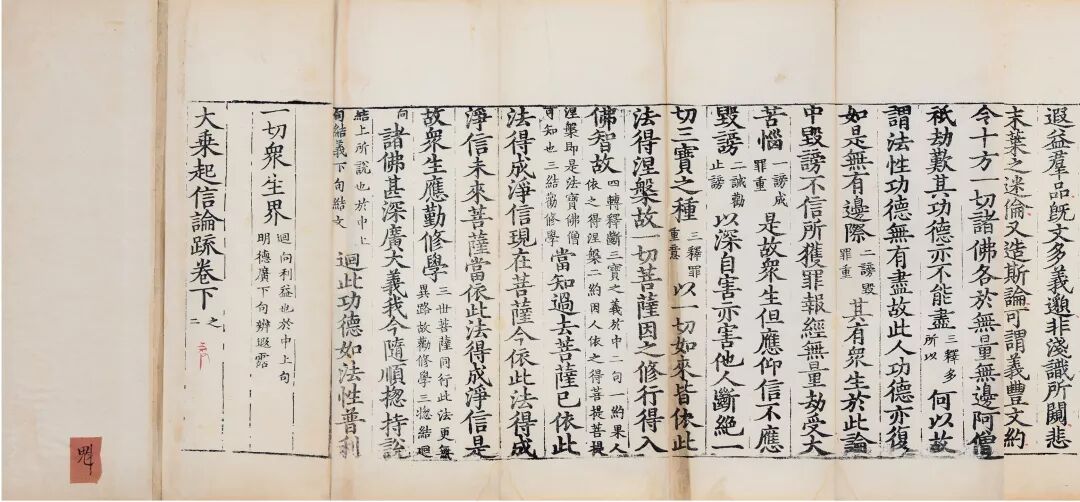 遐益羣品旣文多義邈非淺識所闚悲
末葉之迷倫又造斯論可謂義豐文約
令十方一切諸佛各於無量無邊阿僧
祇劫歎其功德亦不能盡三釋多所以何以故
謂法性功德無有盡故此人功德亦復
如是無有邊際二謗毀罪重其有衆生於此論
中毀謗不信所獲罪報經無量劫受大
苦惱一謗成罪重是故衆生但應仰信不應
毀謗二誡勸止謗以深自害亦害他人斷絕一
切三寶之種三釋罪重意以一切如來皆依此
法得涅槃故一切菩薩因之修行得入
佛智故四轉釋斷三寶之義於中二句一約果人依之得涅槃二約因人依之得菩提菩提
涅槃即是法寶佛僧可知也三結勸修學當知過去菩薩已依此
法得成淨信現在菩薩今依此法得成
淨信未來菩薩當依此法得成淨信是
故衆生應勤修學三世菩薩同行此法更無異路故勸修學三惣結迴
向諸佛甚深廣大義我今隨順揔持說
結上所說也於中上句結義下句結文迴此功德如法性普利
一切衆生界迴向利益也於中上句明德廣下句辦遐霑
大乘起信論疏卷下之二
魁